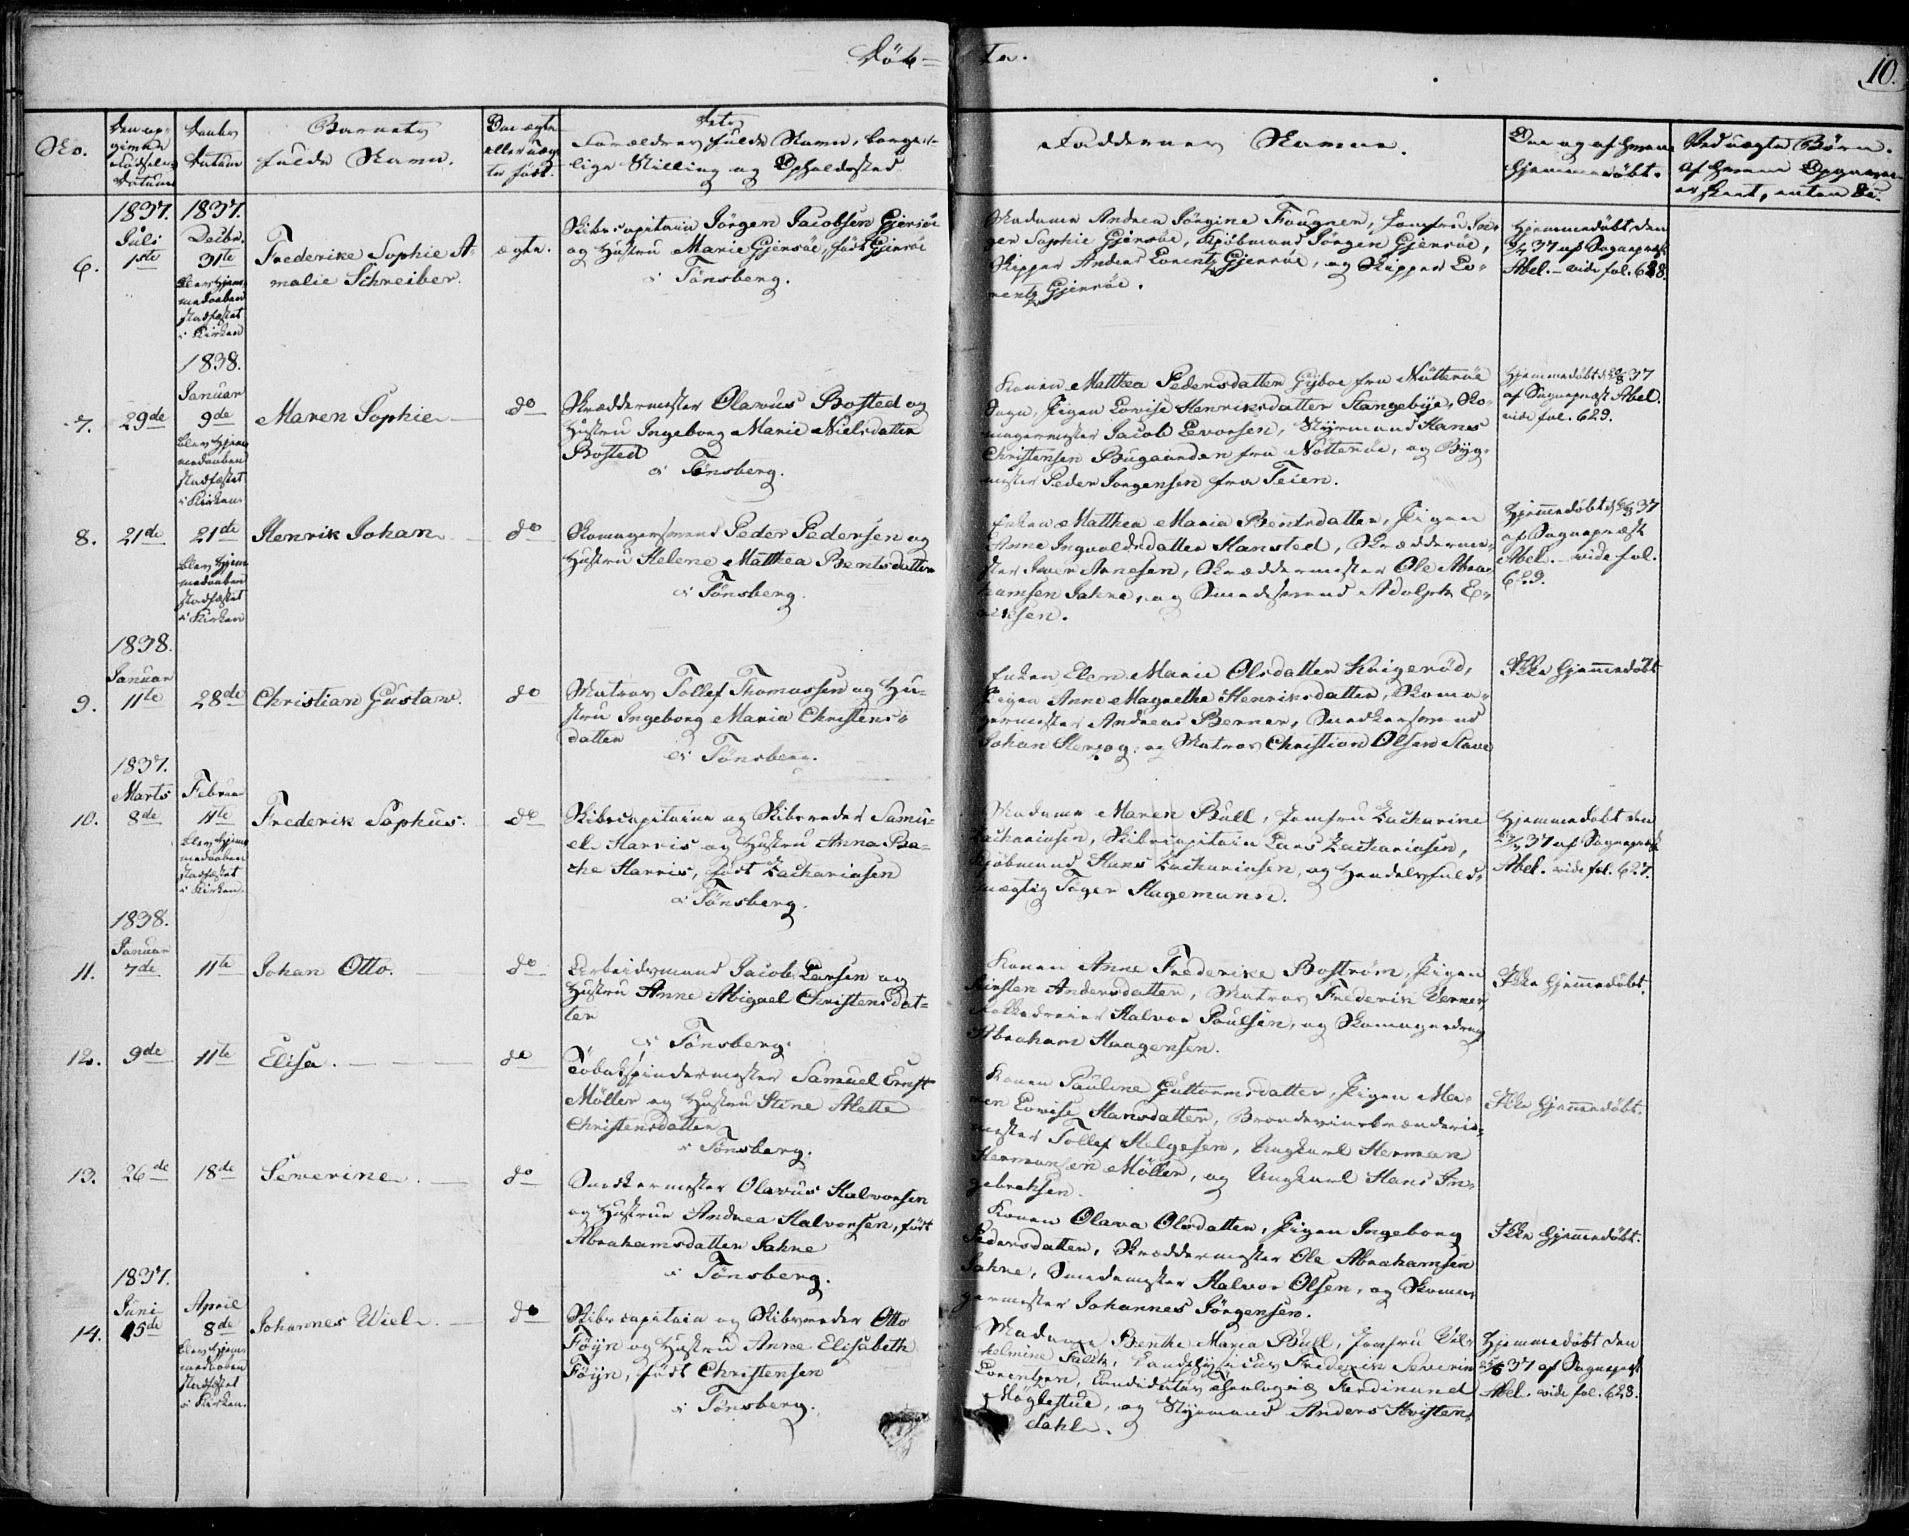 Døb=
te.
10.
No.
Den op-
givne
Fødsels-
Datum
Daabs
Datum
Barnets
fulde Navn.
Om ægte
eller uæg-
te født.
Dets
Forældres fulde Navn, borger-
lige Stilling og Opholdssted
Faddernes Navne.
Om og af hvem
hjemmedøbt.
Ved uægte Børn.
6.
1837.
Juli
1ste
1837.
Decbr.
31te
blev hjem-
medaaben
stadfæstet
i Kirken
Frederike Sophie A-
malie Schreiber.
ægte.
Skibscapitain Jörgen Jacobsen Gjersöe
og Hustru Marie Gjersöe, født Gjersöe
i Tønsberg.
Madame Andrea Jörgine Fougner, Jomfru In-
ger Sophie Gjersöe, Kjøbmand Jörgen Gjersöe,
Skipper Anders Lorentz Gjersöe, og Skipper Lo-
rentz Gjersöe.
Hjemmedøbt den
37 af Sognepræst
Abel. - vide fol. 628.
7.
29de
1838.
Januar
9de
blev hjem-
medaaben
stadfæstet
i Kirken.
Maren Sophie
do
Skræddermester Olavus Bosted og
Hustru Ingeborg Marie Nielsdatter
Bosted
i Tønsberg.
Konen Matthea Pedersdatter Gipöe fra Nötteröe
Sogn, Pigen Lovise Henriksdatter Stangebÿe, Sko-
magermester Jacob Evensen, Styrmand Hans
Christensen Bugaarden fra Nötteröe, og Byg-
mester Peder Jörgensen fra Teien.
Hjemmedøbt 37
af Sognepræst Abel.
vide fol. 629.
8.
21de
21de
blev hjem-
medaaben
stadfæstet
i Kirken
Henrik Johan
do
Skomagersvend Peder Pedersen og
Hustru Helene Matthea Bentsdatter
i Tønsberg.
Enken Matthea Maria Bentsdatter, Pigen
Anne Ingvoldsdatter Hansted, Skrædderme-
ster Iver Arnesen, Skræddermester Ole Abra-
hamsen Jahre, og Smedesvend Adolph E-
riksen.
Hjemmedøbt 37
af Sognepræst
Abel. - vide fol.
629.
9.
1838.
Januar
11te
28de
Christian Gustav.
do
Matros Tollef Thomassen og Hu-
stru Ingeborg Maria Christens-
datter
i Tønsberg.
Enken Elen Marie Olsdatter Krigeröd,
Pigen Anne Magrethe Henriksdatter, Skoma-
germester Andreas Berner, Snedkersvend
Johan Herzog, og Matros Christian Olsen Stave
Ikke hjemmedøbt
10.
1837.
Marts
8de
Februar
11te
blev hjem-
medaaben
stadfæstet
i Kirken.
Frederik Sophus.
do
Skibscapitain og Skibsreder Samu-
el Harris og Hustru Anna Ba-
che Harris, født Zachariasen
i Tønsberg.
Madame Maren Bull, Jomfru Zacharine
Zachariasen, Skibscapitain Lars Zachariasen,
Kjøbmand Hans Zachariasen, og Handelsfuld-
mægtig Töger Hagemann.
Hjemmedøbt den
37 af Sognepræst
Abel. vide fol. 627.
11.
1838.
Januar
7de
11te
Johan Otto.
do
Arbeidsmand Jacob Larsen og
Hustru Anne Abigael Christensdat-
ter
i Tønsberg.
Konen Anne Frederike Boström, Pigen
Kirsten Andersdatter, Matros Frederik Verner,
Halvor Poulsen, og Skomagerdreng
Abraham Haagensen.
Ikke hjemmedøbt.
12.
9de
11te
Elisa.
do
Tobakspindermester Samuel Ernst
Möller og Hustru Stine Alette
Christensdatter
i Tønsberg.
Konen Pauline Guttormsdatter, Pigen Ma-
ren Lovise Hansdatter, Brændevinsbrænderie-
mester Tollef Helgesen, Ungkarl Herman
Hermansen Möller, og Ungkarl Hans In-
gebretsen.
Ikke hjemmedøbt.
13.
26de
18de
Severine.
do
Snedkermester Olavus Halvorsen
og Hustrue Andrea Halvorsen, født
Abrahamsdatter Jahre
i Tønsberg.
Konen Olava Olsdatter, Pigen Ingeborg
Pedersdatter, Skræddermester Ole Abrahamsen
Jahre, Smedemester Halvor Olsen, og Skoma-
germester Johannes Jörgensen.
Ikke hjemmedøbt.
14.
1837.
Juni
15de
April
8de
blev hjem-
medaaben
stadfæstet
i Kirken.
Johannes Wiel.
do
Skibscapitain og Skibsreder Otto
Föyn og Hustru Anne Elisabeth
Föyn, født Christensen
i Tønsberg.
Madame Benthe Maria Bull, Jomfru Vil-
helmine Falck, Landphysicus Frederik Severin
Lorentzen, Candidatus theologiæ Ferdinand
Möglestue, og Styrmand Anders Kvisten-
dahl.
Hjemmedøbt den
37 af Sognepræst
Abel. vide fol. 628.